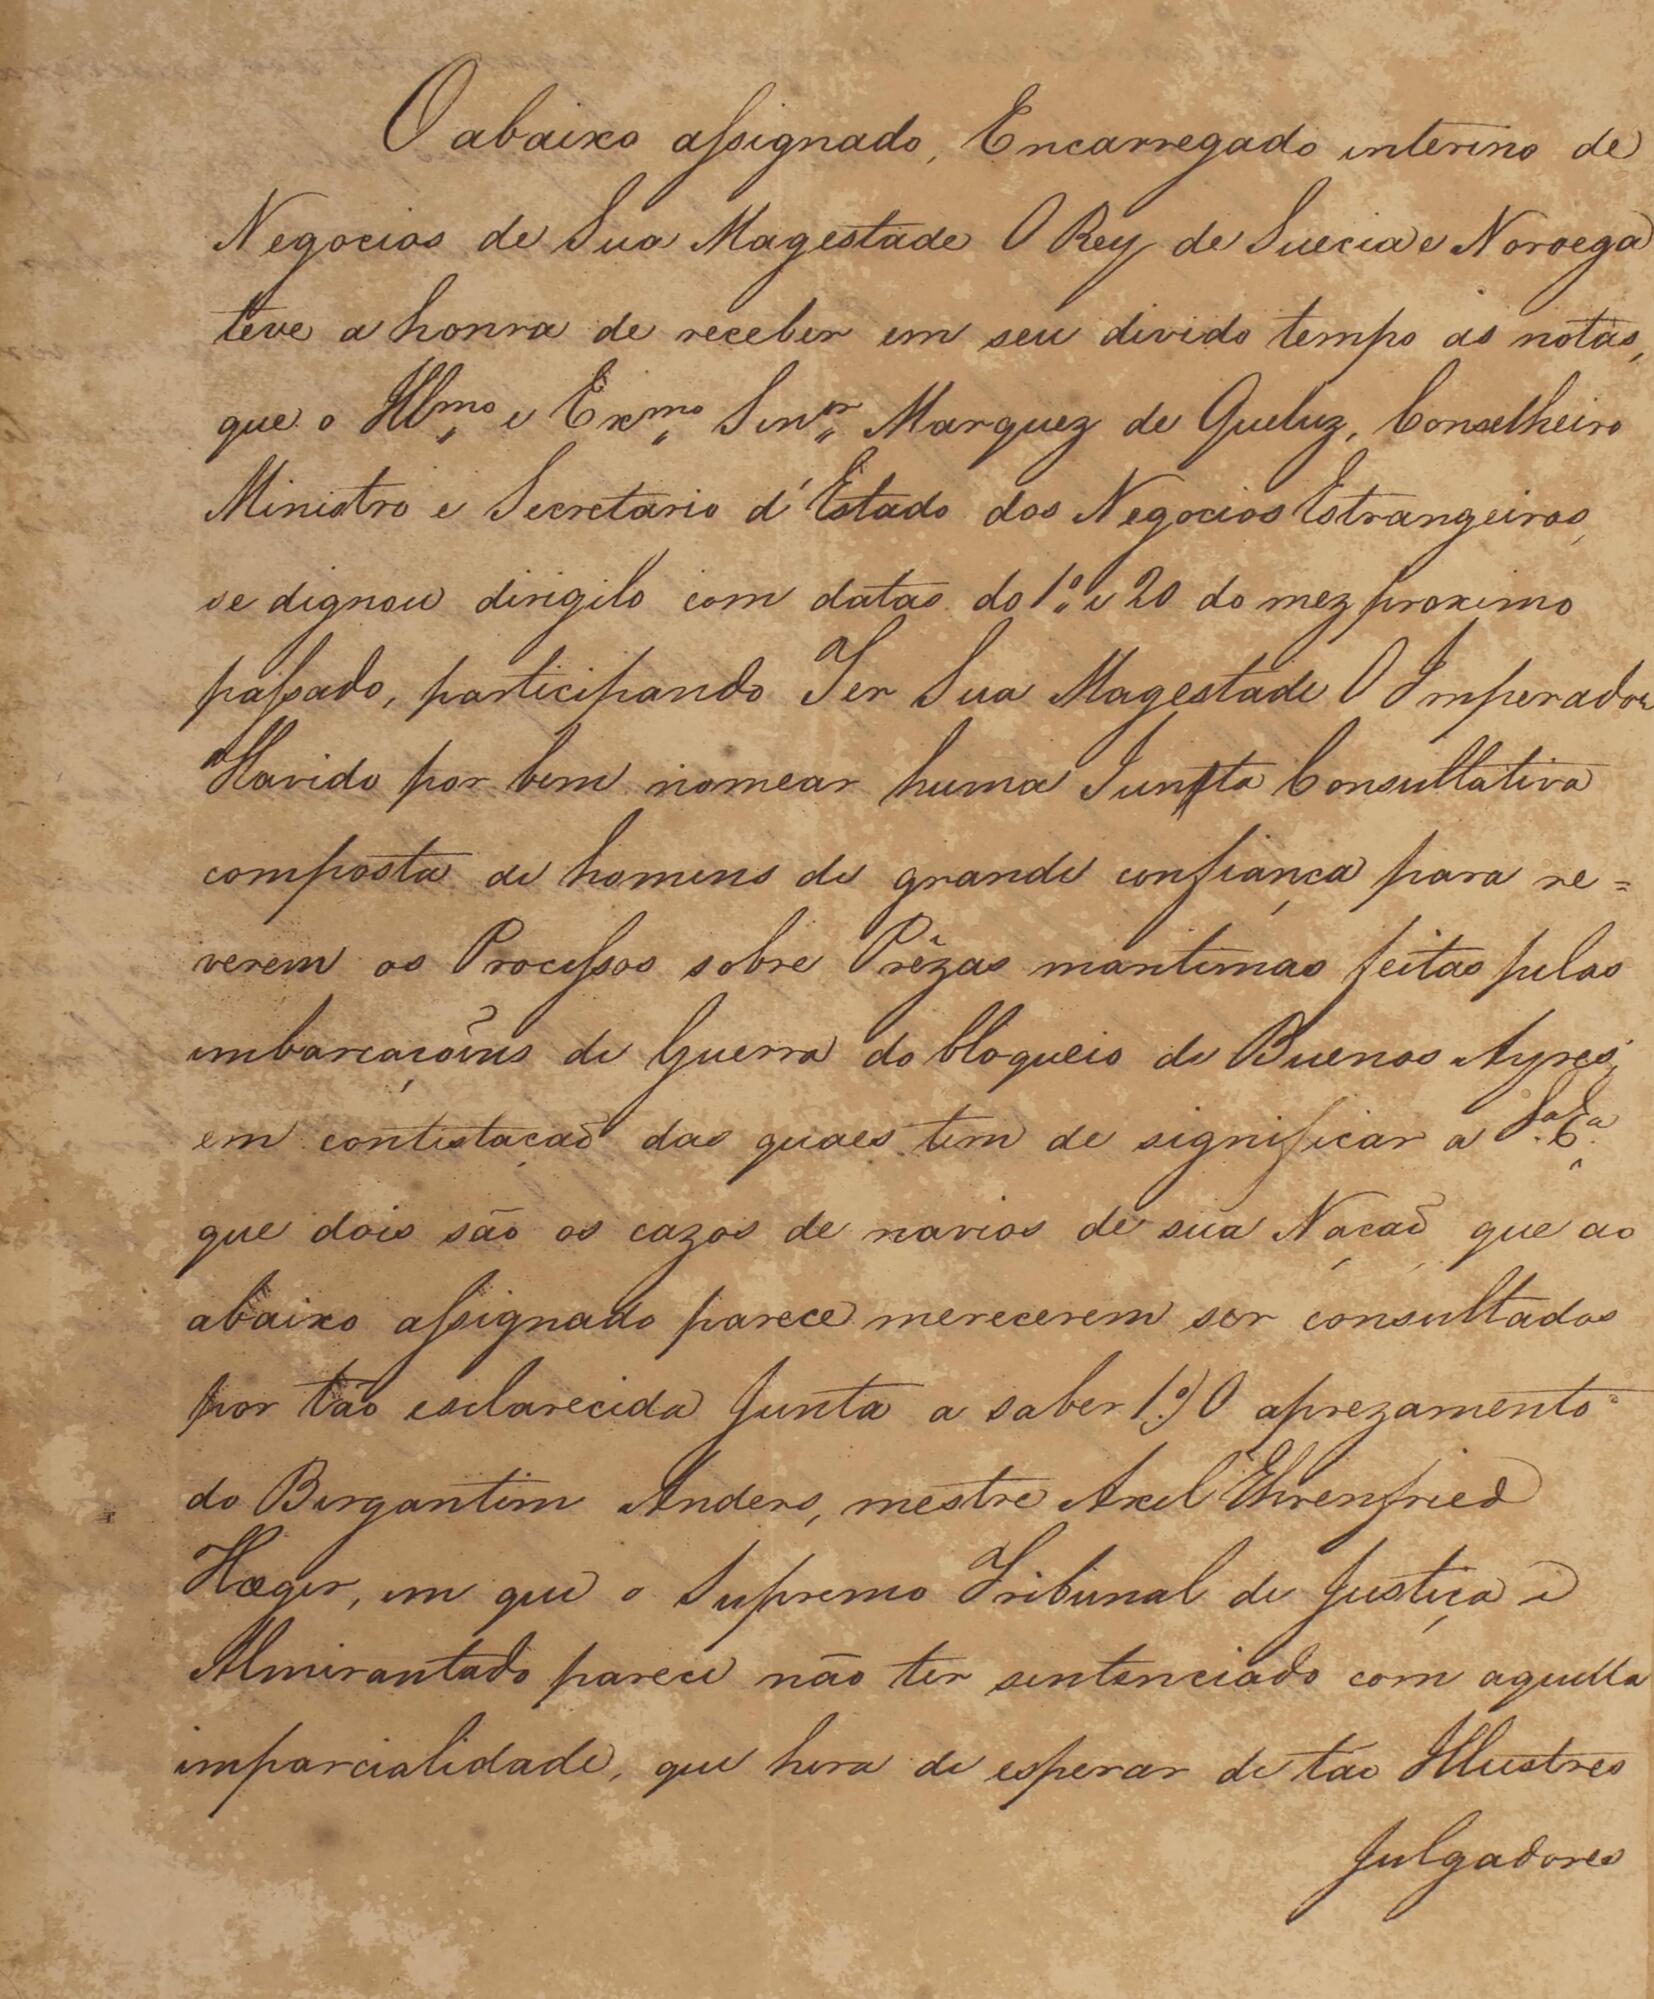 O abaixo assignado, Encarregado interino de
Negocios de Sua Magestade O Rey de Suecia e Noroega
teve a honra de receber em seu divido tempo as notas,
que o Illmo e Exmo Senr Marquez de Queluz, Conselheiro
Ministro e Secretario d'Estado dos Negocios Estrangeiros,
se dignou dirigilo com datas do 1º e 20 do mez proximo
passado, participando Ter Sua Magestade O Imperador
Havido por bem nomear huma Junta Consultativa
composta de homens de grande confiança para re=
verem os Processos sobre Prêzas maritimas feitas pelas
embarcaçoẽns de Guerra do bloqueio de Buenos Ayres,
em contestaçaõ das quaes tem de significar a Sa Ea
que dois são os cazos de navios de sua Naçaõ, que ao
abaixo assignado parece merecerem ser consultados
por tão esclarecida Junta a saber 1º) O aprezamento
do Bergantim Anders, mestre Axel Ehrenfried
Hæger, em que o Supremo Tribunal de Justiça e
Almirantado parece não ter sentenciado com aquella
imparcialidade, que hera de esperar de tao Illustres
Julgadores